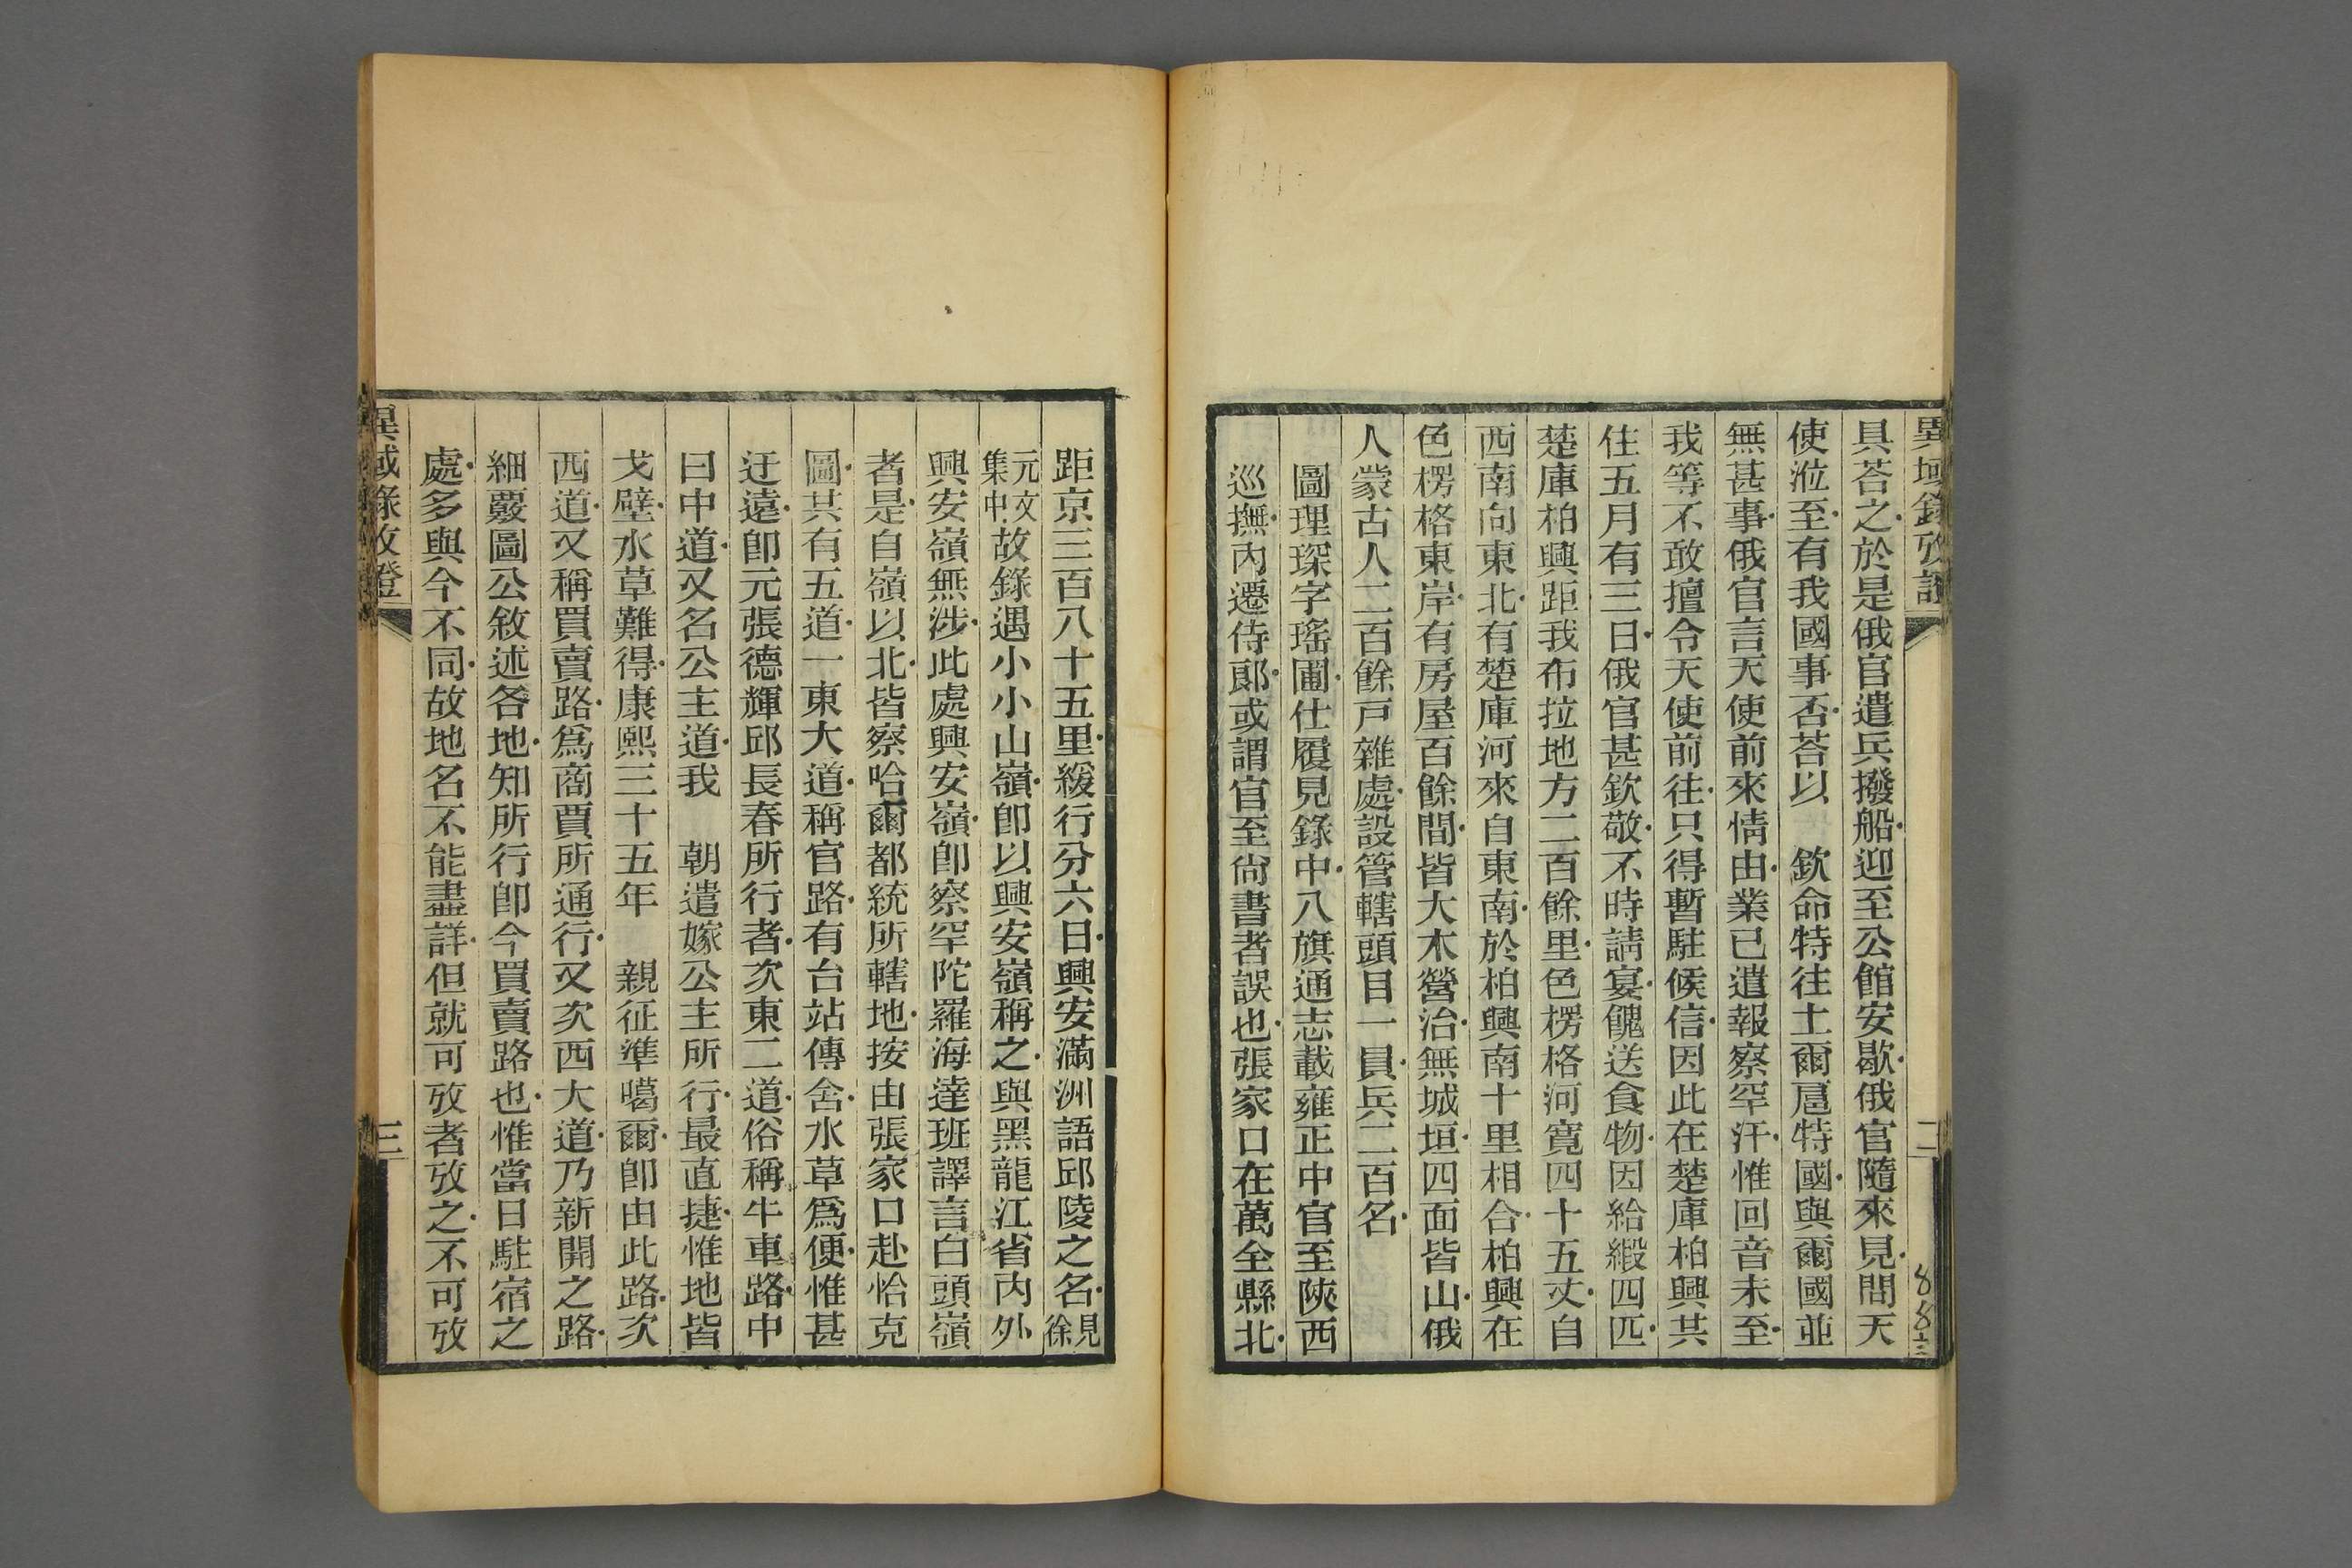 異域錄攷證
二
883
具荅之於是俄官遣兵撥船迎至公館安歇俄官隨來見問天
使涖至有我國事否荅以　欽命特往土爾扈特國與爾國並
無甚事俄官言天使前來情由業已遣報察罕汗惟回音未至
我等不敢擅令天使前往只得暫駐候信因此在楚庫柏興共
住五月有三日俄官甚欽敬不時請宴餽送食物因給緞四匹
楚庫柏興距我布拉地方二百餘里色楞格河寬四十五丈自
西南向東北有楚庫河來自東南於柏興南十里相合柏興在
色楞格東岸有房屋百餘間皆大木營治無城垣四面皆山俄
人蒙古人二百餘戸雜處設管轄頭目一員兵二百名
圖理琛字瑤圃仕履見錄中八旗通志載雍正中官至陝西
巡撫內遷侍郎或謂官至尙書者誤也張家口在萬全縣北
距京三百八十五里緩行分六日興安滿洲語邱陵之名見徐
元文集中故錄遇小小山嶺卽以興安嶺稱之與黑龍江省內外
興安嶺無涉此處興安嶺卽察罕陀羅海達班譯言白頭嶺
者是自嶺以北皆察哈爾都統所轄地按由張家口赴恰克
圖共有五道一東大道稱官路有台站傳舍水草爲便惟甚
迂遠卽元張德輝邱長春所行者次東二道俗稱牛車路中
曰中道又名公主道我　朝遣嫁公主所行最直捷惟地皆
戈壁水草難得康熙三十五年　親征準噶爾卽由此路次
西道又稱買賣路爲商賈所通行又次西大道乃新開之路
細覈圖公敘述各地知所行卽今買賣路也惟當日駐宿之
處多與今不同故地名不能盡詳但就可攷者攷之不可攷
異域錄攷證
三